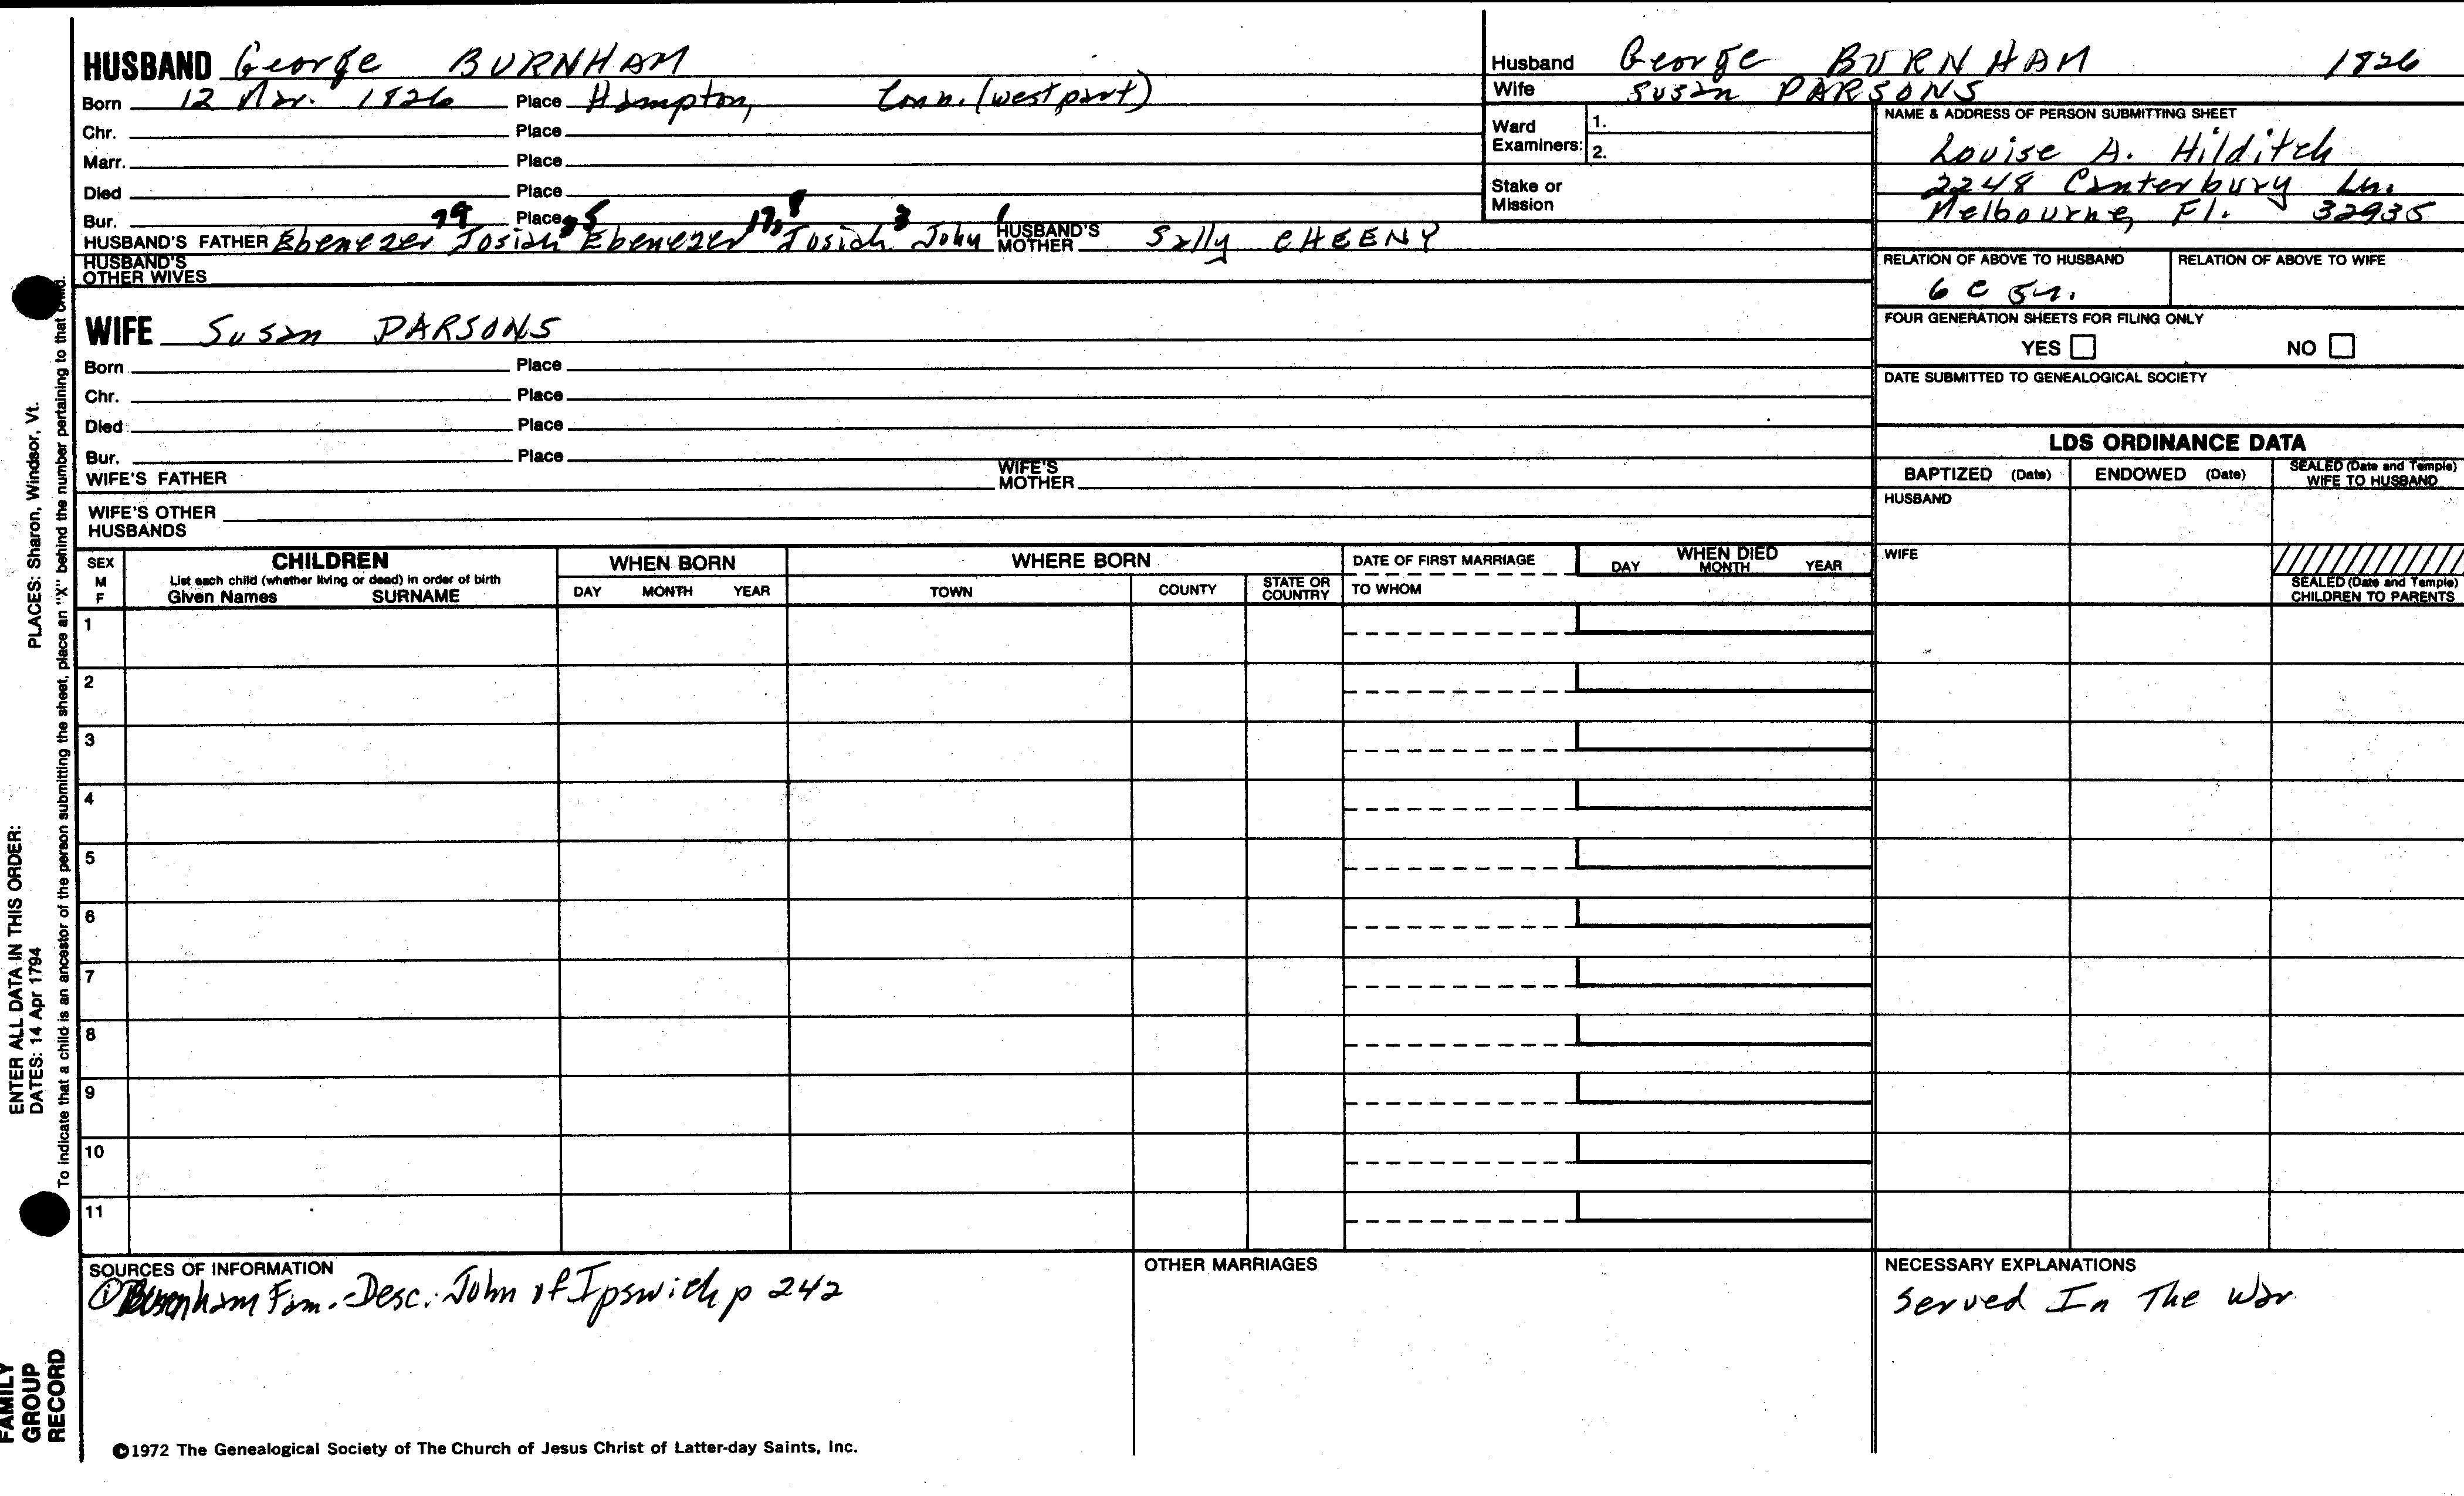 HUSBAND George BURNHAM
Born 12 Mar. 1826 Place Hampton, Conn. (west part)
Chr. Place
Marr. Place
Died Place
Bur. Place
HUSBAND'S FATHER Ebenezer Josiah Ebenezer Josiah John HUSBAND'S MOTHER Sally CHEENY
HUSBAND'S OTHER WIVES
WIFE Susan PARSONS
Born Place
Chr. Place
Died Place
Bur. Place
WIFE'S FATHER WIFE'S MOTHER
WIFE'S OTHER HUSBANDS
Husband George BURNHAM 1826
Wife Susan PARSONS
Ward Examiners: 1.
2.
Stake or Mission
NAME & ADDRESS OF PERSON SUBMITTING SHEET
Louise A. Hilditch
2248 Canterbury Ln.
Melbourne, Fl. 32935
RELATION OF ABOVE TO HUSBAND RELATION OF ABOVE TO WIFE
6 C
FOUR GENERATION SHEETS FOR FILING ONLY
YES NO
DATE SUBMITTED TO GENEALOGICAL SOCIETY
LDS ORDINANCE DATA
BAPTIZED (Date) ENDOWED (Date) SEALED (Date and Temple) WIFE TO HUSBAND
HUSBAND
WIFE
SEALED (Date and Temple) CHILDREN TO PARENTS
SEX M F
CHILDREN
List each child (whether living or dead) in order of birth
Given Names SURNAME
WHEN BORN
DAY MONTH YEAR
WHERE BORN
TOWN COUNTY STATE OR COUNTRY
DATE OF FIRST MARRIAGE
TO WHOM
WHEN DIED
DAY MONTH YEAR
1
2
3
4
5
6
7
8
9
10
11
SOURCES OF INFORMATION
① Burnham Fam.-Desc. John of Ipswich p 242
OTHER MARRIAGES
NECESSARY EXPLANATIONS
Served In The War
©1972 The Genealogical Society of The Church of Jesus Christ of Latter-day Saints, Inc.
ENTER ALL DATA IN THIS ORDER:
DATES: 14 Apr 1794 PLACES: Sharon, Windsor, Vt.
To indicate that a child is an ancestor of the person submitting the sheet, place an "X" behind the number pertaining to that child.
FAMILY
GROUP
RECORD